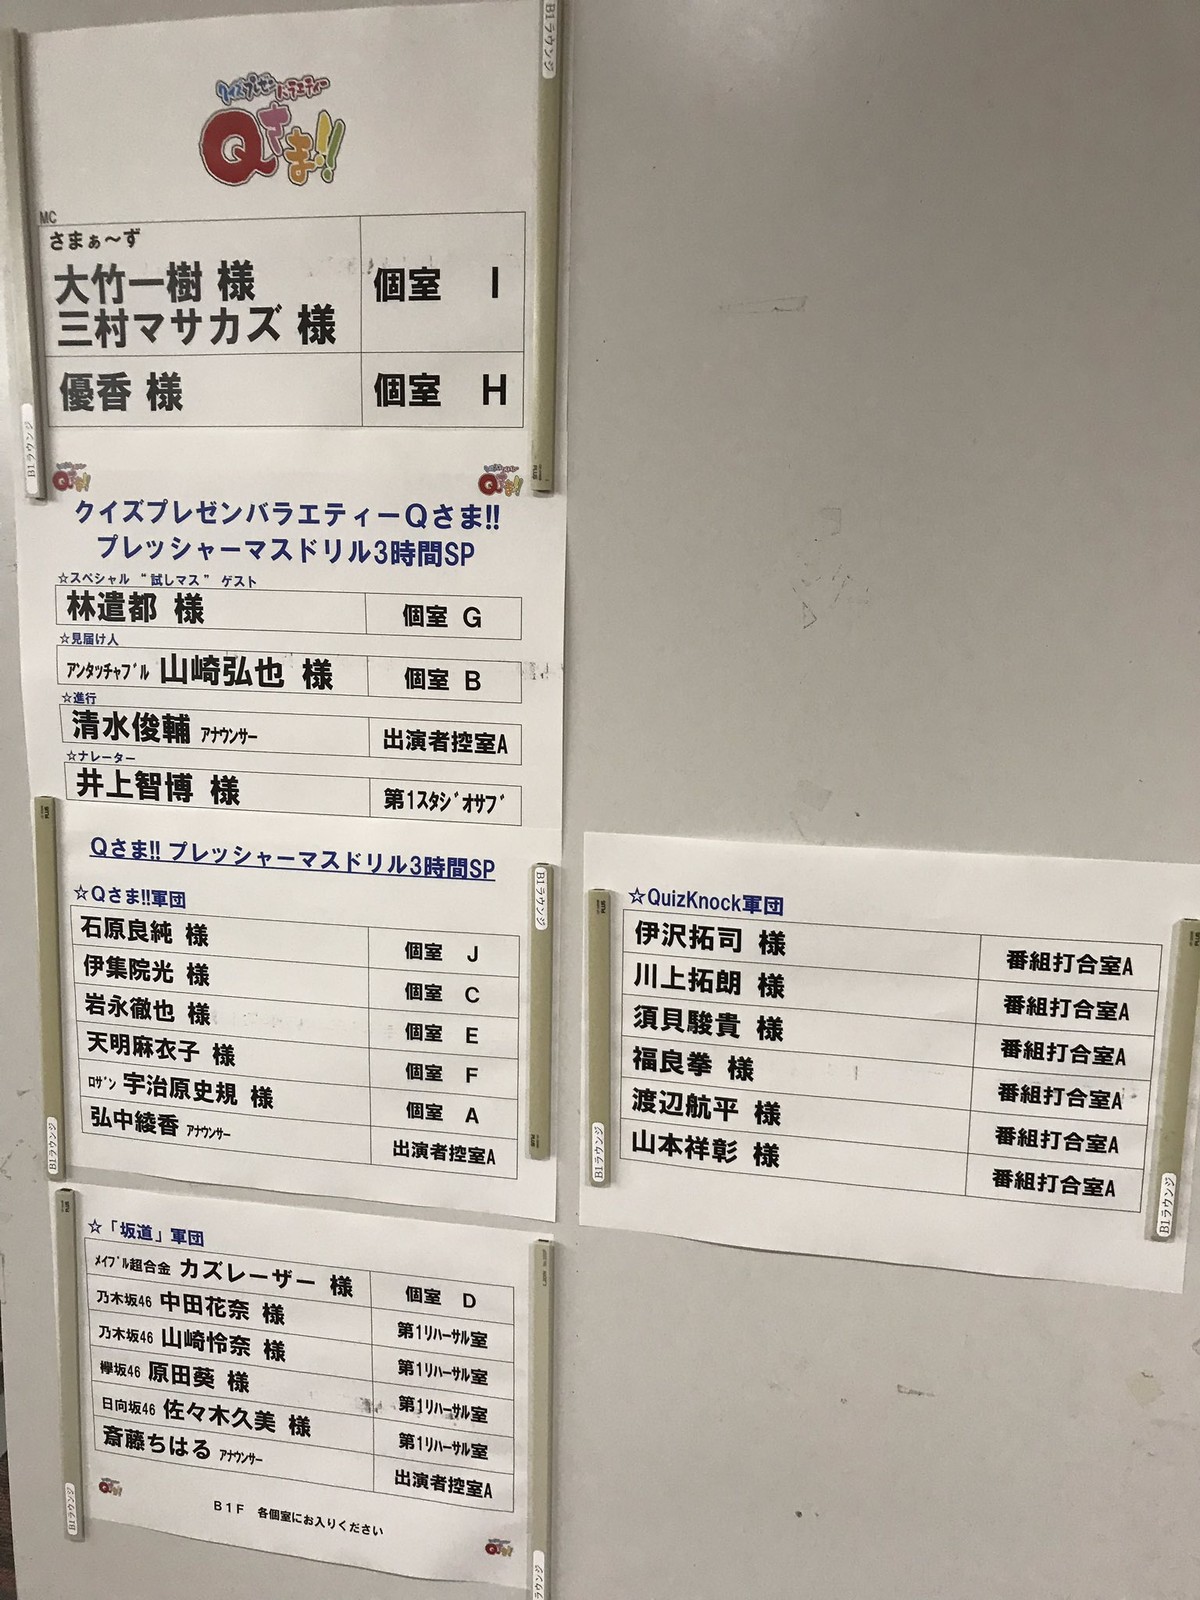 B1ラウンジ
クイズプレゼンバラエティー
Qさま!!
MC
さまぁ〜ず
大竹一樹 様
三村マサカズ 様
個室 I
優香 様
個室 H
B1ラウンジ
PLUS
Qさま!!
Qさま!!
クイズプレゼンバラエティーQさま!!
プレッシャーマスドリル3時間SP
☆スペシャル “試しマス” ゲスト
林遣都 様
個室 G
☆見届け人
アンタッチャブル 山崎弘也 様
個室 B
☆進行
清水俊輔 アナウンサー
出演者控室A
☆ナレーター
井上智博 様
第1スタジオサブ
PLUS
Qさま!! プレッシャーマスドリル3時間SP
B1ラウンジ
☆Qさま!!軍団
石原良純 様
個室 J
伊集院光 様
個室 C
岩永徹也 様
個室 E
天明麻衣子 様
個室 F
ロザン 宇治原史規 様
個室 A
弘中綾香 アナウンサー
出演者控室A
B1ラウンジ
PLUS
☆QuizKnock軍団
PLUS
伊沢拓司 様
番組打合室A
川上拓朗 様
番組打合室A
須貝駿貴 様
番組打合室A
福良拳 様
番組打合室A
渡辺航平 様
番組打合室A
山本祥彰 様
番組打合室A
B1ラウンジ
B1ラウンジ
PLUS
☆「坂道」軍団
メイプル超合金 カズレーザー 様
個室 D
乃木坂46 中田花奈 様
第1リハーサル室
乃木坂46 山崎怜奈 様
第1リハーサル室
欅坂46 原田葵 様
第1リハーサル室
日向坂46 佐々木久美 様
第1リハーサル室
斎藤ちはる アナウンサー
出演者控室A
B1ラウンジ
Qさま!!
B1F 各個室にお入りください
Qさま!!
ラウンジ